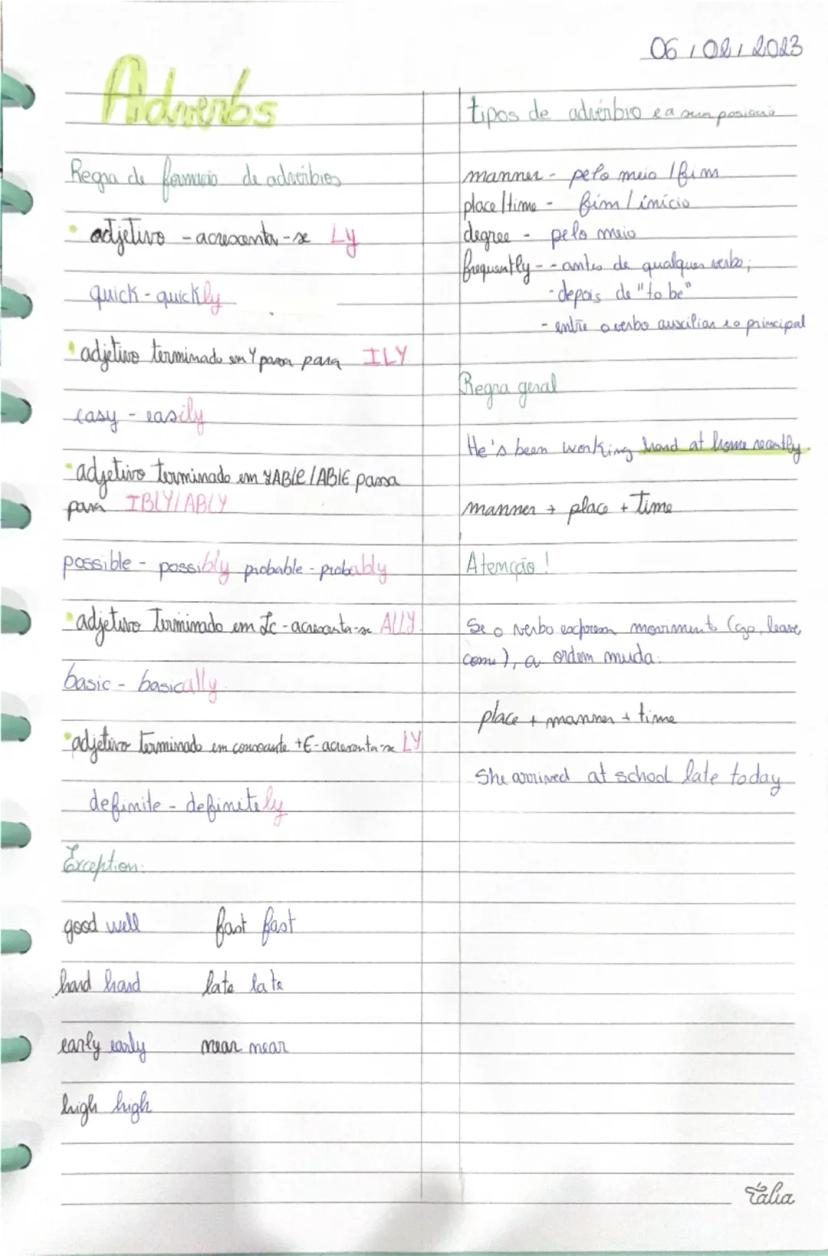 06/02/2023
Adverbs
Regra de formação de advérbios
adjetivo - acrescenta-se LY
quick - quickly
adjetivo terminado em Y passa para ILY
easy - easily
adjetivo terminado em IBLE/ABLE passa
para IBLY/ABLY
possible - possibly probable - probably
adjetivo terminado em Ic - acrescenta-se ALLY
basic - basically
adjetivo terminado em consoante + E - acrescenta-se LY
definite - definitely
Exception:
good well fast fast
hard hard late late
early early near near
high high
tipos de advérbio e a sua posição
manner - pelo meio / fim
place/time - fim/início
degree - pelo meio
frequently - - antes de qualquer verbo;
- depois de "to be"
- entre o verbo auxiliar e o principal
Regra geral
He's been working hard at home recently.
manner + place + time
Atenção!
Se o verbo expressa movimento (go, leave,
come), a ordem muda.
place + manner + time
She arrived at school late today
Tália